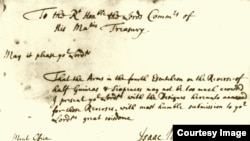 To the Rt Honble the Lords Commrs of
His Maties Treasury.
May it please yor Lordps
That the Arms in the fourth Escutcheon on the Reverse of
half Guineas & Sixpences may not be too much crowded
I present yor Lordps with the Designe hereunto annexed
for those Reverses, with most humble submission to yor
Lordps great wisdome
Mint Office
Isaac
Courtesy Image